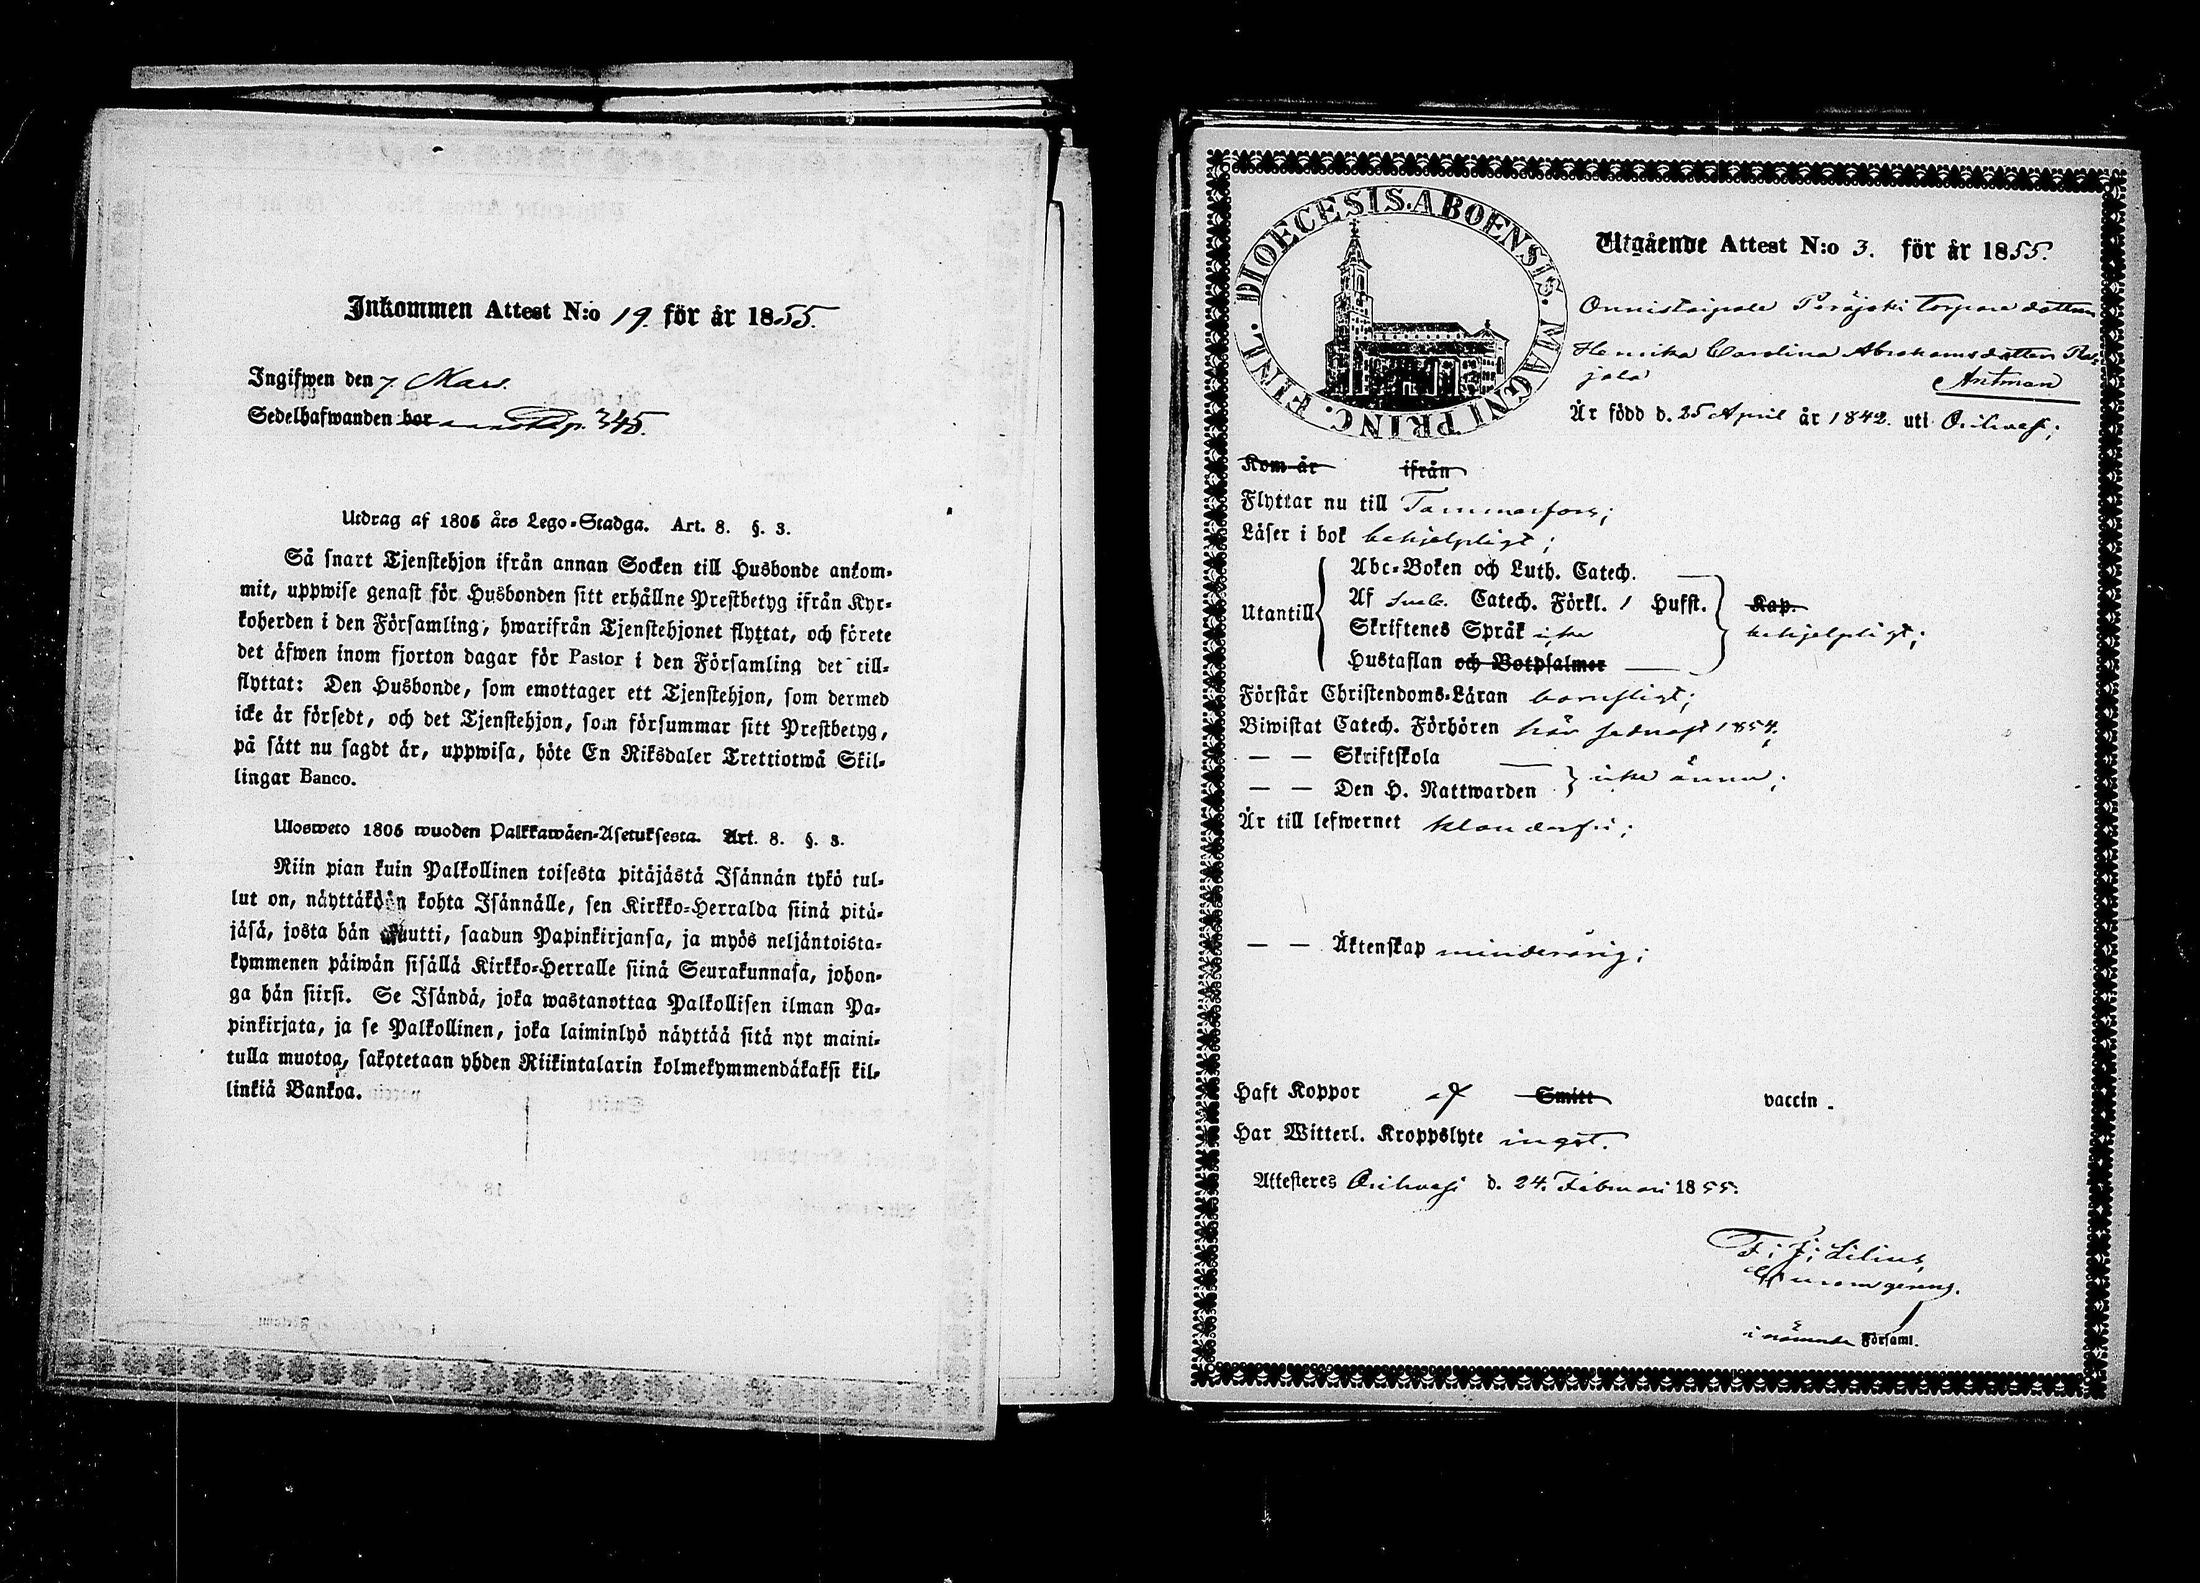 Inkommen Attest N:o 19. för år 1855.
Ingifwen den 7. Mars.
Sedelhafwanden bor pag. 345.
Utdrag af 1805 års Lego-Stadga. Art. 8. §. 3.
Så snart Tjenstehjon ifrån annan Socken till Husbonde ankom-
mit, uppwise genast för Husbonden sitt erhållne Prestbetyg ifrån Kyr-
koherden i den Församling, hwarifrån Tjenstehjonet flyttat, och förete
det äfwen inom fjorton dagar för Pastor i den Församling det till-
flyttat: Den Husbonde, som emottager ett Tjenstehjon, som dermed
icke är försedt, och det Tjenstehjon, som försummar sitt Prestbetyg,
på sätt nu sagdt är, uppwisa, böte En Riksdaler Trettiotwå Skil-
lingar Banco.
Ulosweto 1805 wuoden Palkkawäen-Asetuksesta. Art. 8. §. 3.
Niin pian kuin Palkollinen toisesta pitäjästä Isännän tykö tul-
lut on, näyttäköön kohta Isännälle, sen Kirkko-Herralda siinä pitä-
jäsä, josta hän muutti, saadun Papinkirjansa, ja myös neljäntoista-
kymmenen päiwän sisällä Kirkko-Herralle siinä Seurakunnasa, johon-
ga hän siirsi. Se Isändä, joka wastanottaa Palkollisen ilman Pa-
pinkirjata, ja se Palkollinen, joka laiminlyö näyttää sitä nyt maini-
tulla muotoa, sakotetaan yhden Riikintalarin kolmekymmendäkaksi kil-
linkiä Bankoa.
DIOECESIS. ABOENSIS. MAGNI PRINC. FINL.
Utgående Attest N:o 3. för år 1855.
Onnistaipale Peräjoki Torpare dottern
Henrika Carolina Abrahamsdotter Ra-
jala
Antman
Är född d. 25 April år 1842. uti Orihvesi;
Kom år ifrån
Flyttar nu till Tammerfors;
Läser i bok behjelpligt;
Utantill
Abc-Boken och Luth. Catech. —
Af Sveb. Catech. Förkl. 1 Hufst.
Skriftenes Språk icke
Hustaflan och Botpsalmer —
Kap.
behjelpligt;
Förstår Christendoms-Läran barnsligt;
Biwistat Catech. Förhören här sednast 1854;
— — Skriftskola —
— — Den H. Nattwarden } icke ännu;
Är till lefwernet klanderfri;
— — Äktenskap minderårig;
Haft Koppor af Smitt vaccin.
Har Witterl. Kroppslyte inget.
Attesteres Orihvesi d. 24. Februari 1855.
F. J. Lilius,
i nämnde Församl.